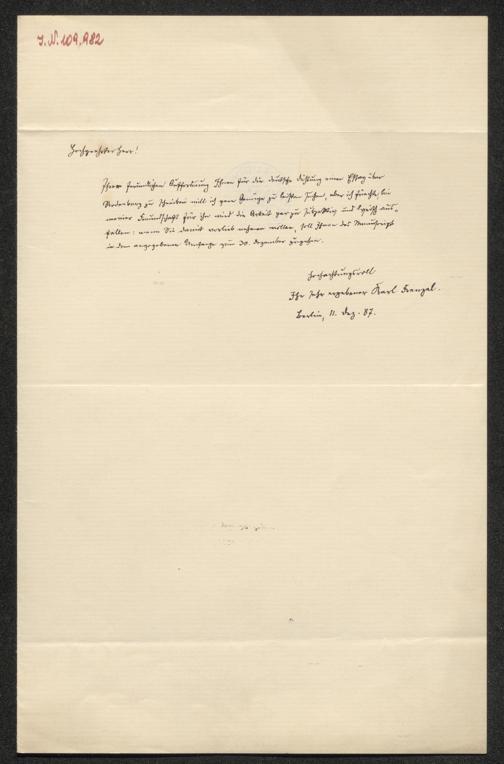 J.N. 109,982
Hochgeehrter Herr!
Ihrer freundlichen Aufforderung Ihnen für die deutsche Dichtung einen Essay über
Rodenberg zu schreiben will ich gern Genüge zu leisten suchen, aber ich fürchte, bei
meiner Freundschaft für ihn wird die Arbeit gar zu und lyrisch aus-
fallen: wenn Sie damit vorlieb nehmen wollen, soll Ihnen das Manuscript
in dem angegebenen Umfange zum 30. Dezember zugehen.
Hochachtungsvoll
Ihr sehr ergebener Karl Frenzel.
Berlin, 11. Dez. 87.